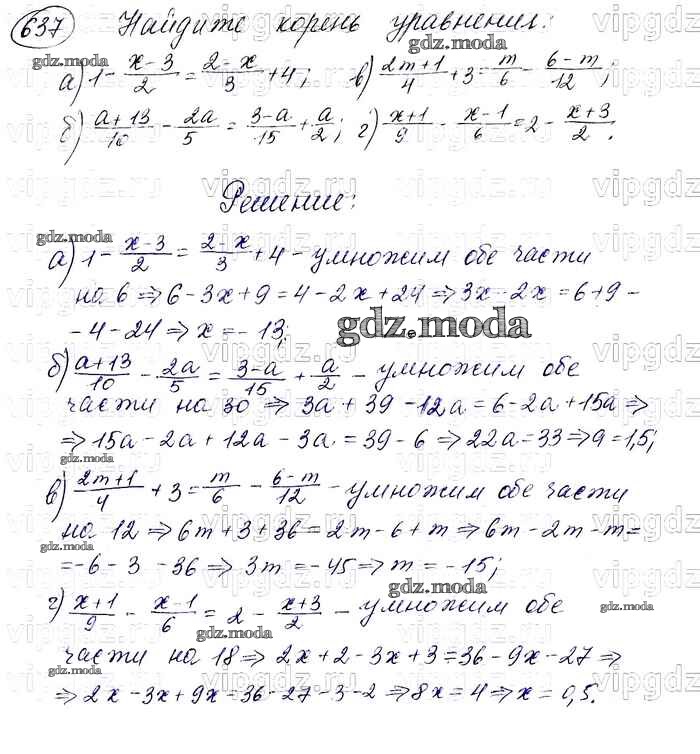 637 Найдите корень уравнения:
а) 1 - (x-3)/2 = (2-x)/3 + 4; в) (2m+1)/4 + 3 = m/6 - (6-m)/12;
б) (a+13)/10 - 2a/5 = (3-a)/15 + a/2; г) (x+1)/9 - (x-1)/6 = 2 - (x+3)/2.
Решение:
а) 1 - (x-3)/2 = (2-x)/3 + 4 - умножим обе части
на 6 ⇒ 6-3x+9=4-2x+24 ⇒ 3x-2x=6+9-
-4-24 ⇒ x=-13;
б) (a+13)/10 - 2a/5 = (3-a)/15 + a/2 - умножим обе
части на 30 ⇒ 3a+39-12a=6-2a+15a ⇒
⇒ 15a-2a+12a-3a=39-6 ⇒ 22a=33 ⇒ 9=1,5;
в) (2m+1)/4 + 3 = m/6 - (6-m)/12 - умножим обе части
на 12 ⇒ 6m+3+36=2m-6+m ⇒ 6m-2m-m=
=-6-3-36 ⇒ 3m=-45 ⇒ m=-15;
г) (x+1)/9 - (x-1)/6 = 2 - (x+3)/2 - умножим обе
части на 18 ⇒ 2x+2-3x+3=36-9x-27 ⇒
⇒ 2x-3x+9x=36-27-3-2 ⇒ 8x=4 ⇒ x=0,5.
gdz.moda
vipgdz.ru